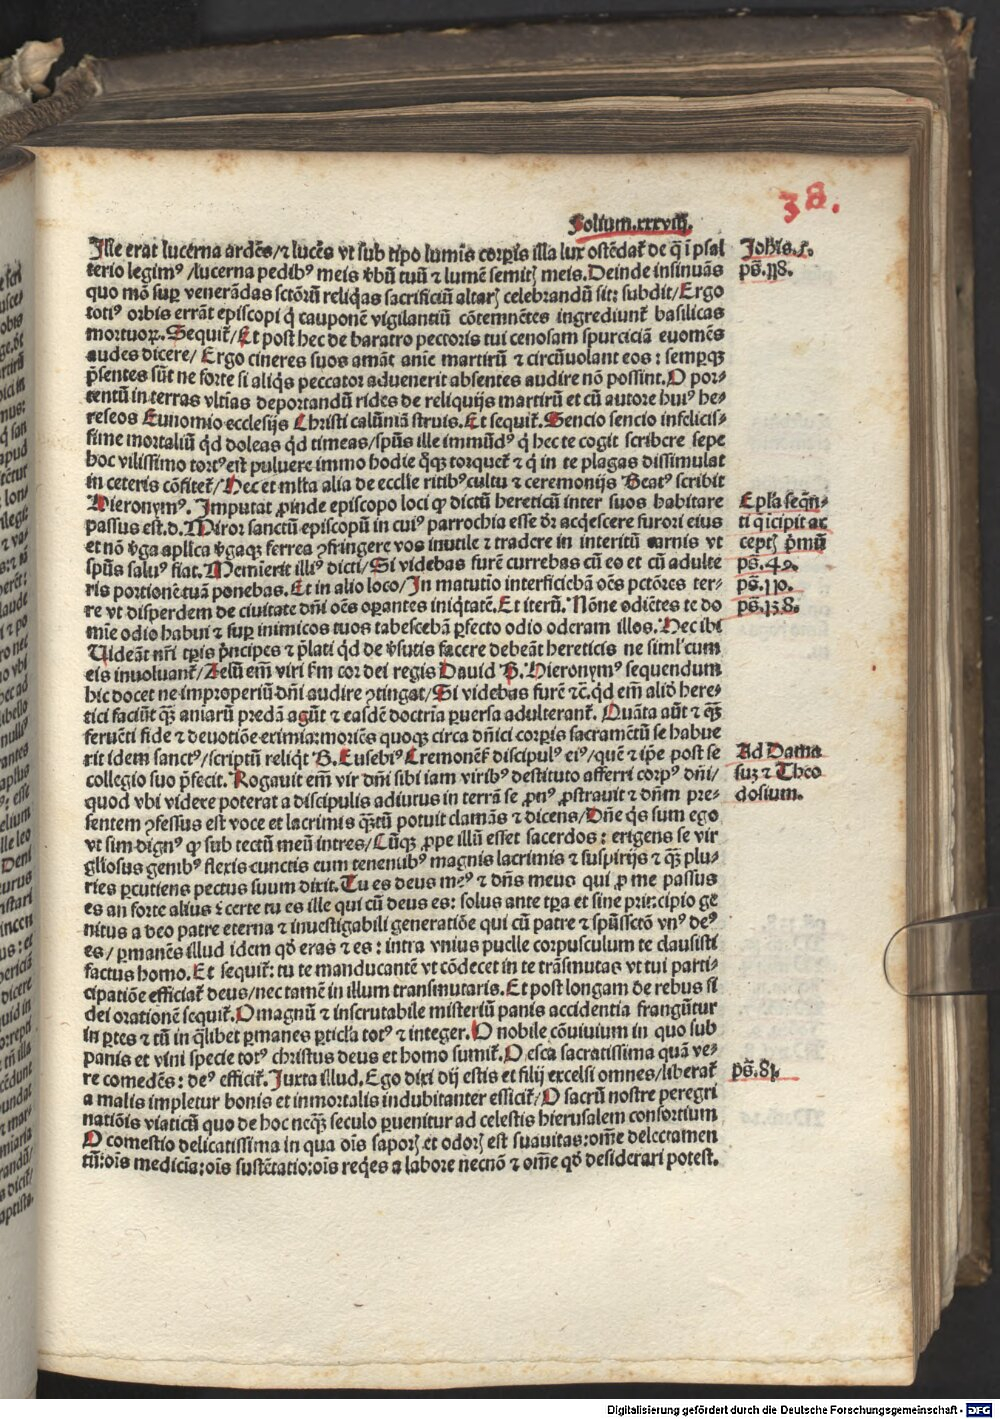 38.
Folium.xxxviij.
Ille erat lucerna ardēs/⁊ lucēs vt sub tipo lumīs corpīs illa lux ostēdat᷑ de q̄ ī psal
terio legimꝰ /lucerna pedibꝰ meis v̓bū tuū ⁊ lumē semitꝭ meis. Deinde insinuās
quo mō suꝑ venerādas sctōrū reliq̇as sacrificiū altarꝭ celebrandū sit: subdit/Ergo
totiꝰ orbis errāt episcopi q̇ cauponē vigilantiū cōtemnētes ingrediunt᷑ basilicas
mortuoꝝ. Sequit᷑/Et post hec de baratro pectoris tui cenosam spurciciā euomēs
audes dicere/ Ergo cineres suos amāt anīe martirū ⁊ circūuolant eos : sempqꝫ
p̄sentes sūt ne forte si aliq̇s peccator aduenerit absentes audire nō possint. O por⸗
tentū in terras vltīas deportandū rides de reliquijs martirū et cū autore huiꝰ he⸗
reseos Eunomio ecclesijs Christi calūniā struis. Et sequit᷑. Sencio sencio infelicis⸗
sime mortaliū q̇d doleas q̇d timeas/spūs ille immūdꝰ q̇ hec te cogit scribere sepe
hoc vilissimo tortꝰ est puluere immo hodie q̊qꝫ torquet᷑ ⁊ q̇ in te plagas dissimulat
in ceteris cōfitet᷑/Hec et ml̓ta alia de eccl̓ie ritibꝰ cultu ⁊ ceremonijs Beatꝰ scribit
Hieronymꝰ. Imputat ꝓinde episcopo loci q̊ dictū hereticū inter suos habitare
passus est.d. Miror sanctū episcopū in cuiꝰ parrochia esse dr̄ acq̇escere furori eius
et nō v̓ga apl̓ica v̓gaqꝫ ferrea ꝯfringere vos inutile ⁊ tradere in interitū carnis vt
spūs saluꝰ fiat. Meminerit illiꝰ dicti/Si videbas furē currebas cū eo et cū adulte
ris portionē tuā ponebas. Et in alio loco/In matutio interficiebā oēs pctōres ter⸗
re vt disperdem de ciuitate dn̄i oēs oꝑantes iniq̇tatē. Et iterū. Nōne odiētes te do
mīe odio habui ⁊ suꝑ inimicos tuos tabescebā ꝑfecto odio oderam illos. Hec ibi
Videāt nr̄i tꝑis p̄ncipes ⁊ p̄lati q̇d de v̓sutis facere debeāt hereticis ne siml̓ cum
eis inuoluant᷑/zelū em̄ viri s̄m cor dei regis Dauid B. Hieronymꝰ sequendum
hic docet ne improperiū dn̄i audire ꝯtingat/Si videbas furē ⁊c̄. q̇d em̄ aliđ here⸗
tici faciūt q̄ꝫ aniarū predā agūt ⁊ easdē doctrīa ꝑuersa adulterant᷑. Quāta aūt ⁊ q̄ꝫ
feruēti fide ⁊ deuotiōe eximia: moriēs quoqꝫ circa dn̄ici corpis sacramētū se habue
rit idem sanctꝰ/scriptū reliq̇t B. Eusebiꝰ Cremonēs᷑ discipulꝰ eiꝰ/quē ⁊ ip̄e post se
collegio suo p̄fecit. Rogauit em̄ vir dn̄i sibi iam viribꝰ destituto afferri corpꝰ dn̄i/
quod vbi videre poterat a discipulis adiutus in terrā se ꝓnꝰ ꝓstrauit ⁊ dn̄m pre⸗
sentem ꝯfessus est voce et lacrimis q̄ꝫtū potuit clamās ⁊ dicens/Dn̄e q̇s sum ego
vt sim dignꝰ ꝙ sub tectū meū intres/Cūqꝫ ꝓpe illū esset sacerdos : erigens se vir
gl̓iosus genibꝰ flexis cunctis eum tenentibꝰ magnis lacrimis ⁊ suspirijs ⁊ q̄ꝫ plu⸗
ries ꝑcutiens pectus suum dixit. Tu es deus meꝰ ⁊ dn̄s meus qui ꝓ me passus
es an forte alius ⁊ certe tu es ille qui cū deus es: solus ante tꝑa et sine principio ge
nitus a deo patre eterna ⁊ inuestigabili generatiōe qui cū patre ⁊ spūsscto vnꝰ deꝰ
es/ ꝑmanēs illud idem qđ eras ⁊ es : intra vnius puelle corpusculum te clausisti
factus homo. Et sequit᷑: tu te manducantē vt cōdecet in te trāsmutas vt tui parti⸗
cipatiōe efficiat᷑ deus/nec tamē in illum transmutaris. Et post longam de rebus fi
dei orationē sequit᷑. O magnū ⁊ inscrutabile misteriū panis accidentia frangūtur
in ꝑtes ⁊ tū in q̄libet ꝑmanes ꝑticl̓a totꝰ ⁊ integer. O nobile cōuiuium in quo sub
panis et vini specie totꝰ christus deus et homo sumit᷑. O esca sacratissima quā ve⸗
re comedēs : deꝰ efficit᷑. Juxta illud. Ego dixi dij estis et filij excelsi omnes/liberat᷑
a malis impletur bonis et inmortalis indubitanter efficit᷑/O sacrū nostre peregri
natiōis viaticū quo de hoc neq̄ꝫ seculo ꝑuenitur ad celestis hierusalem consortium
O comestio delicatissima in qua oīs saporꝭ et odorꝭ est suauitas: om̄e delectamen
tū: oīs medicīa: oīs sustētatio: oīs req̇es a labore necnō ⁊ om̄e qđ desiderari potest.
Joh̄is.5.
pš.118.
Epl̓a seq̄n⸗
ti q̇ icipit ac
ceptꝭ p̄mū
pš.49.
pš.110.
pš.138.
Ad Dama
suꝫ ⁊ Theo
dosium.
pš.81.